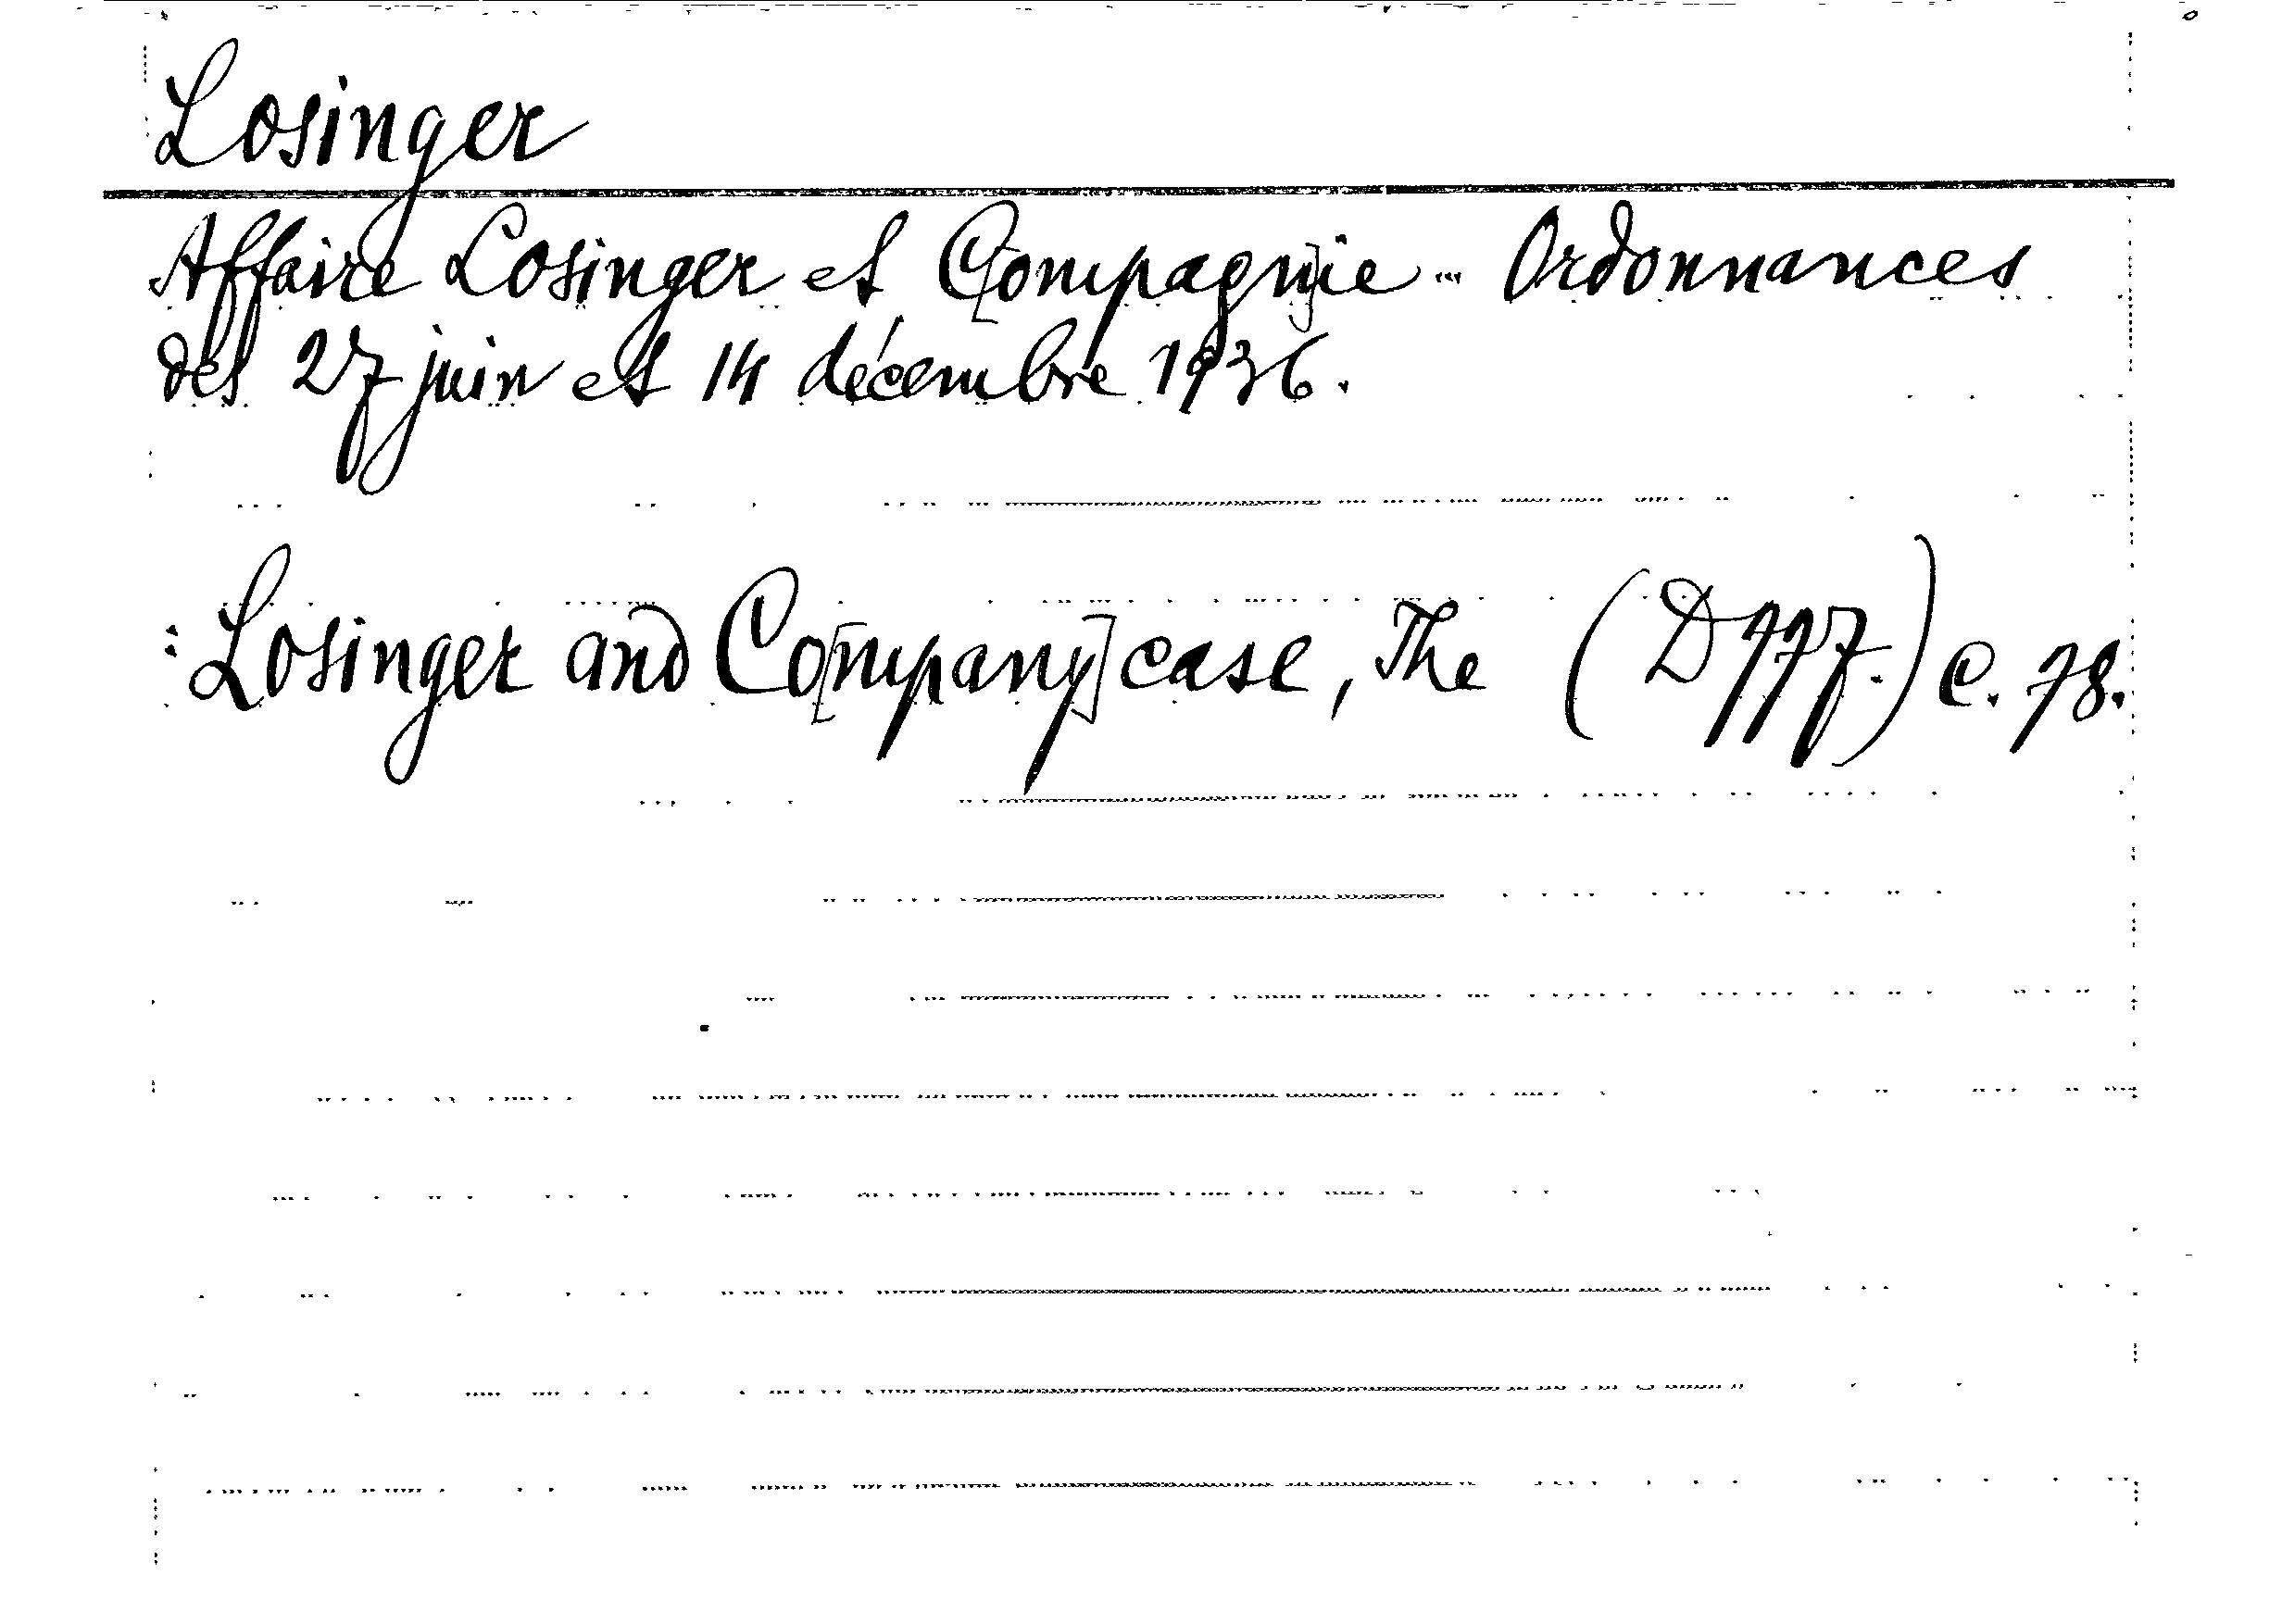 Losinger
Affaire Losinger et C[ompagn]ie - Ordonnances
des 27 juin et 14 décembre 1936.
: Losinger and Co[mpany] case, The (D 777.) C. 78.